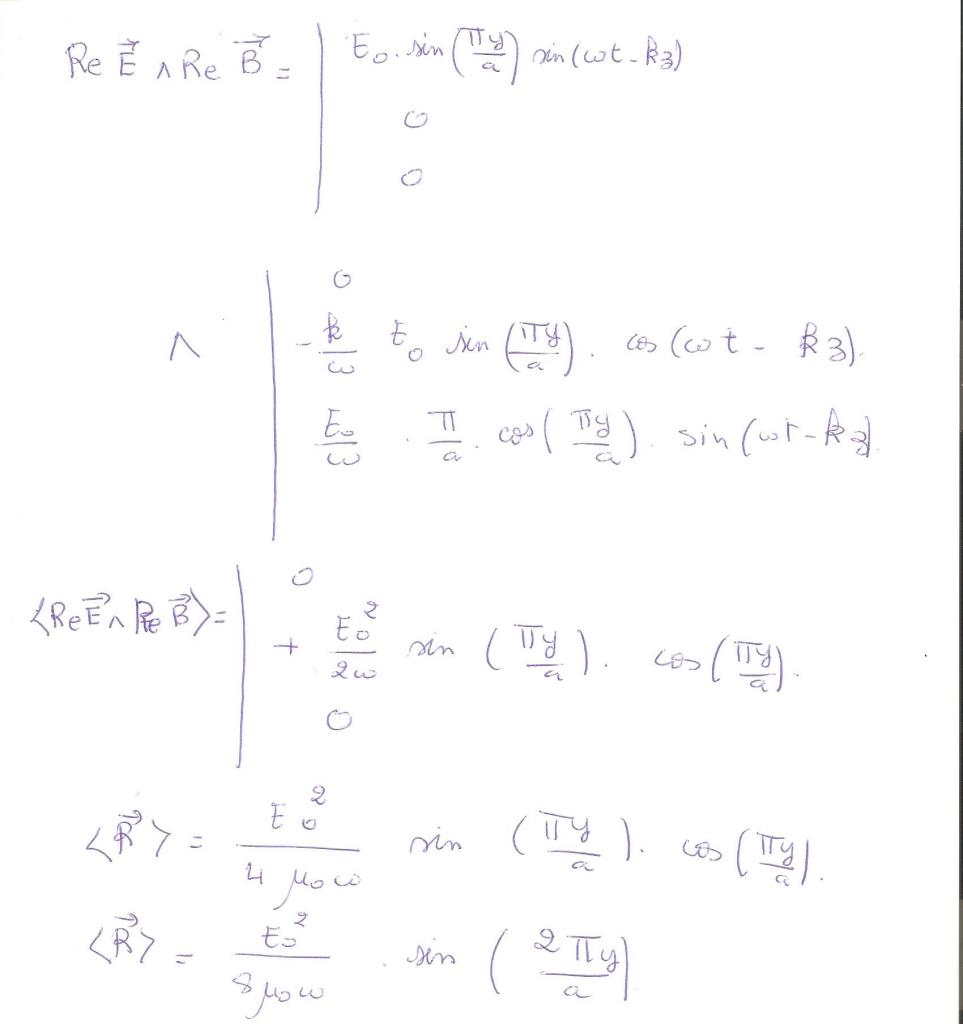 Re E⃗ ∧ Re B⃗ = | E₀. sin(πy/a) sin(ωt - kz)
0
0
0
∧ | - k/ω E₀ sin(πy/a). cos(ωt - kz).
E₀/ω . π/a . cos(πy/a). sin(ωt - kz).
0
<Re E⃗ ∧ Re B⃗> = | + E₀²/2ω sin(πy/a). cos(πy/a).
0
<R⃗> = E₀²/4 μ₀ω sin(πy/a). cos(πy/a).
<R⃗> = E₀²/8 μ₀ω . sin(2πy/a)